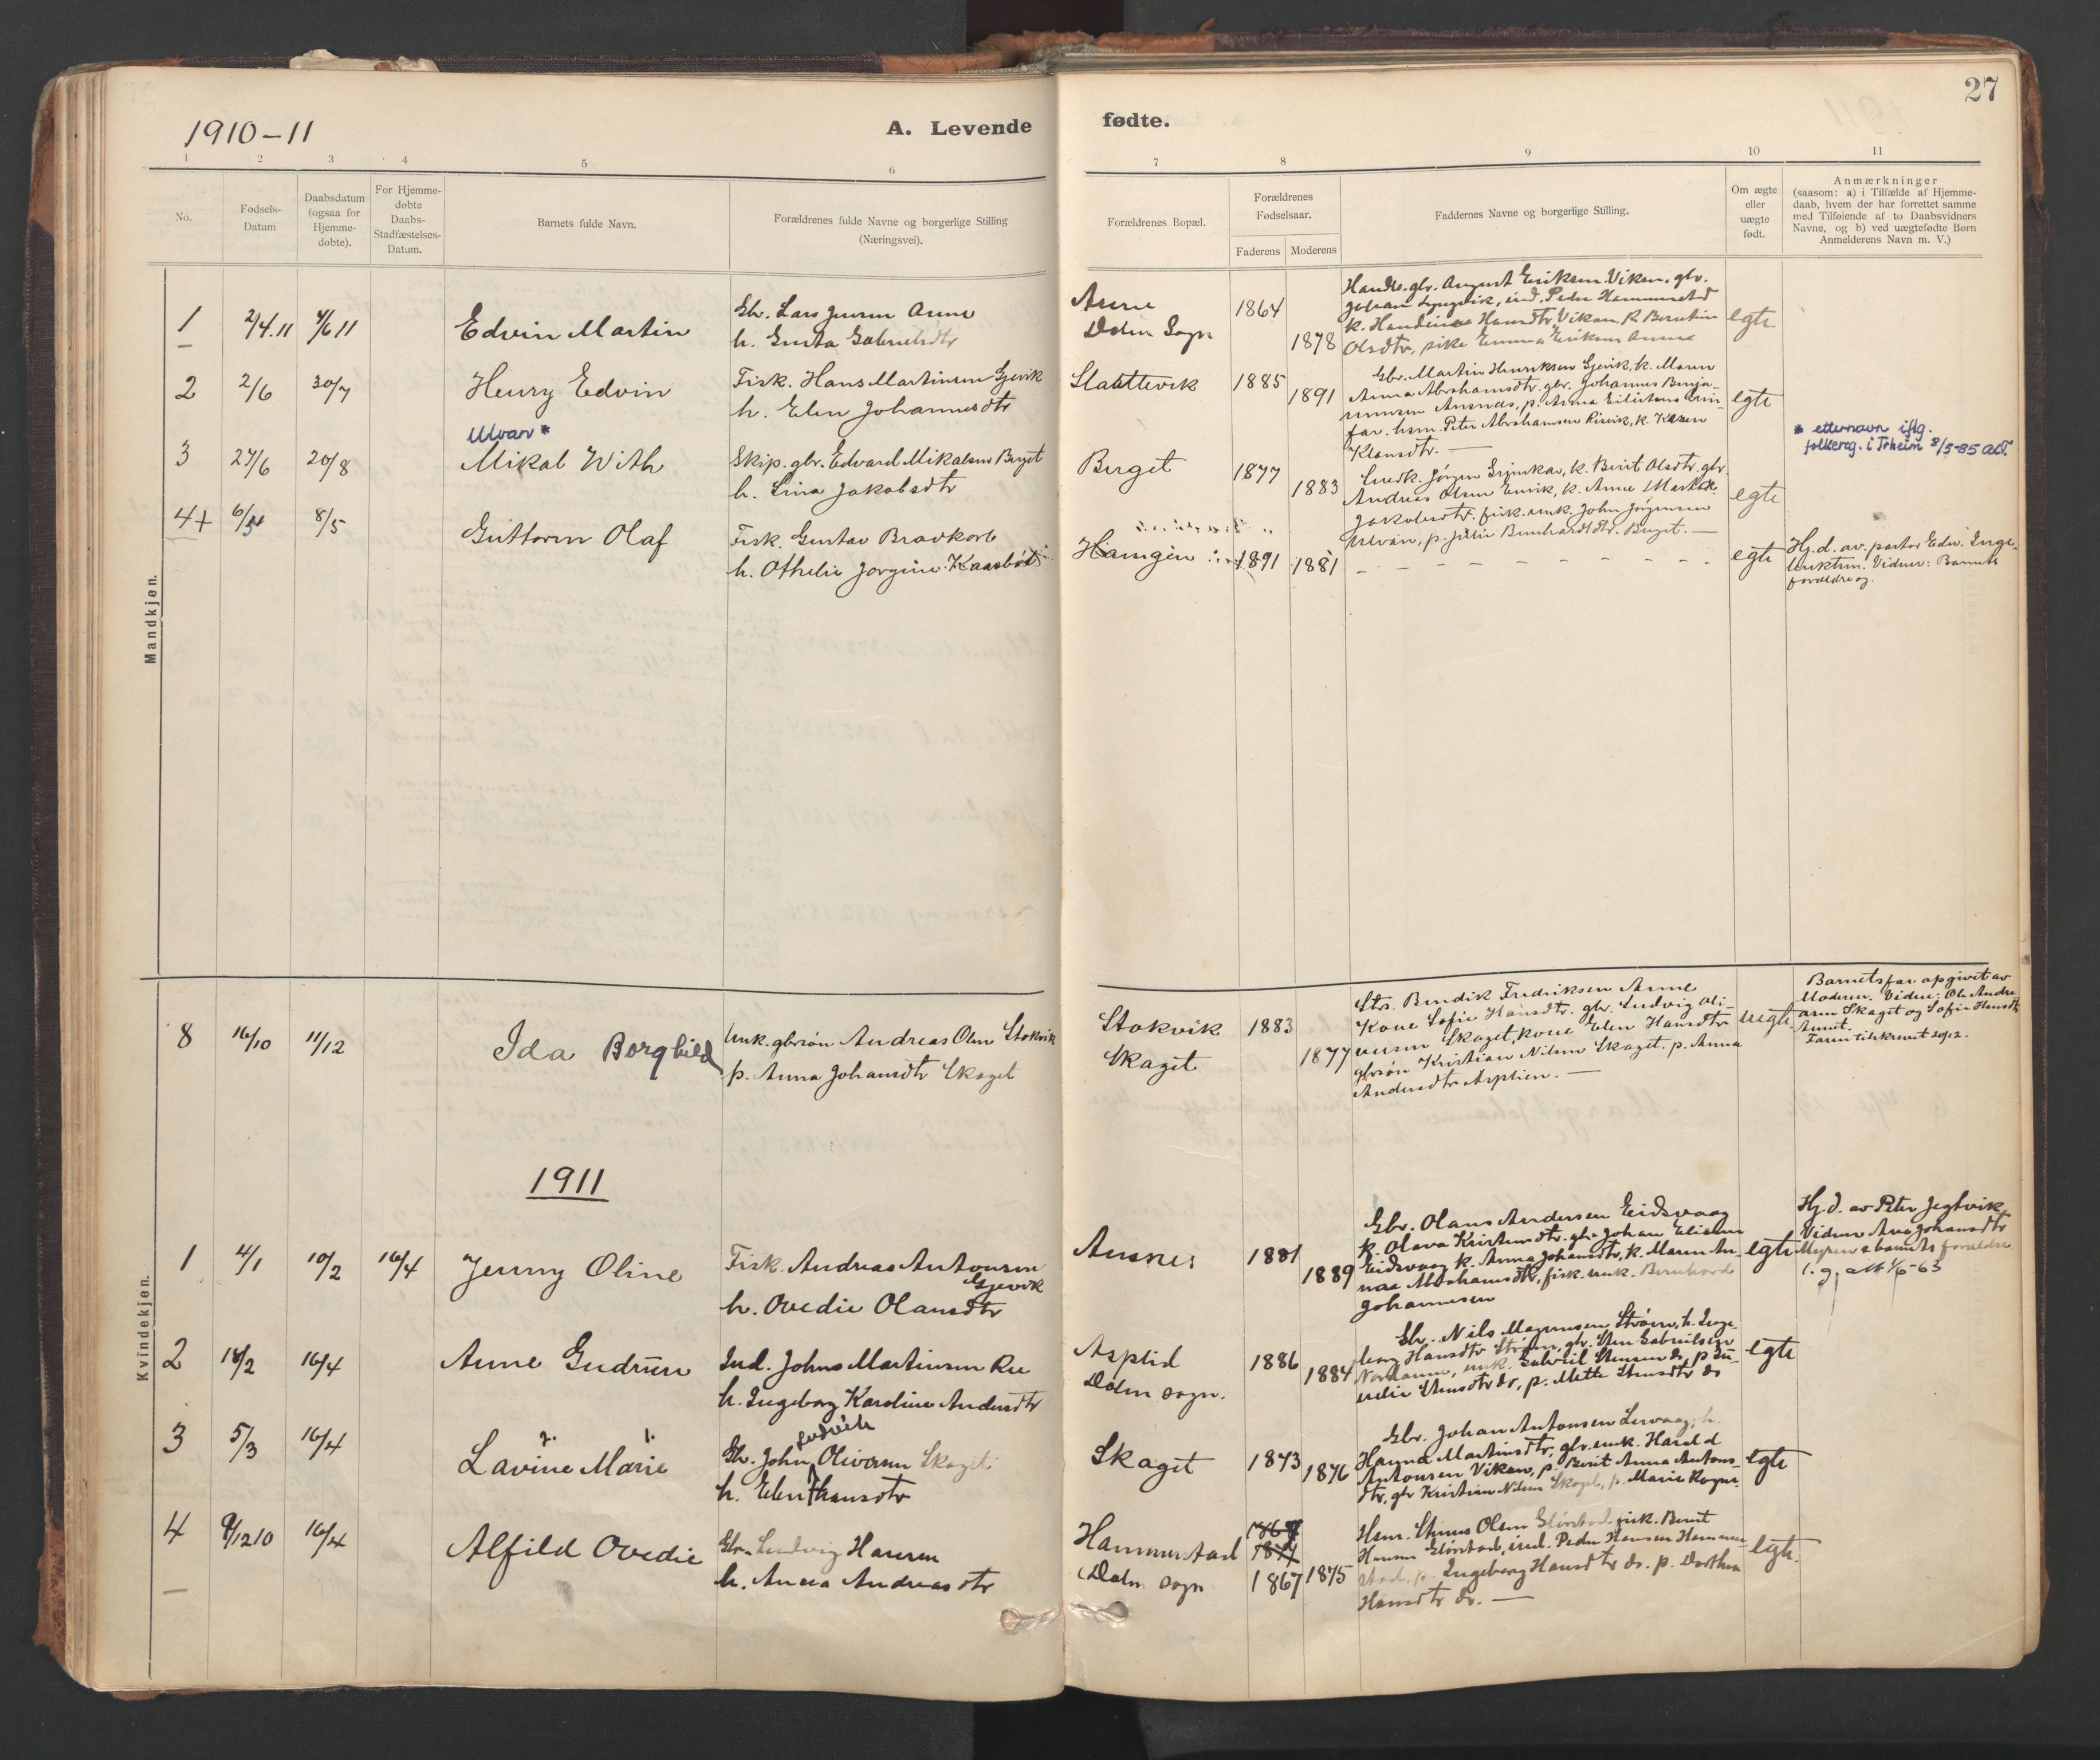 27
1910-11
A. Levende fødte.
1 2 3 4 5 6 7 8 9 10 11
No.
Fødsels-
Datum
Daabsdatum
(ogsaa for
Hjemme-
døbte).
For Hjemme-
døbte
Daabs-
Stadfæstelses-
Datum.
Barnets fulde Navn.
Forældrenes fulde Navne og borgerlige Stilling
(Næringsvei).
Forældrenes Bopæl.
Forældrenes
Fødselsaar.
Faderens Moderens
Faddernes Navne og borgerlige Stilling.
Om ægte
eller
uægte
født.
Anmærkninger
(saasom: a) i Tilfælde af Hjemme-
daab, hvem der har forrettet samme
med Tilføiende af to Daabsvidners
Navne, og b) ved uægtefødte Børn
Anmelderens Navn m. V.)
Mandkjøn.
1 2/4.11 4/6 11 Edvin Martin
Gbr. Lars Jensen Aune
h. Gusta Gabrielsdtr
Aune
Dolm Sogn
1864
1878
Handls. gbr. August Eriksen Viken, gbr.
ind. Peder Hammerstad
k. Handine Hansdtr. Viken, k. Berntine
Olsdtr, pike Emma Eriksen Aune
egte
2 2/6 30/7 Henry Edvin
Fisk. Hans Martinsen Gjevik
h. Elen Johannesdtr
Slaattevik
1885
1891
Gbr. Martin Henriksen Gjevik, k. Maren
Anna Abrahamsdtr. gbr. Johannes Benja-
minsen Ansnes, p. Anna
far. hsm. Peter Abrahamsen k. Karen
Klausdtr. —
egte
Ulvan *
3 27/6 20/8 Mikal With
Skip. gbr. Edvard Mikalsen Berget
h. Lina Jakobsdtr
Berget
1877
1883
Snedk. Jørgen Grimkar, k. Berit Olsdtr. gbr.
Andreas Olsen k. Anne Martha
Jakobsdtr. fisk. unk. John Jørgensen
Ulvan, p. Julie Bernhardtdtr. Berget. —
egte
* etternavn iflg.
folkereg. i Trheim 8/5-85
4+ 6/5 8/5 Guttorm Olaf
Fisk. Gustav Bravkorb
h. Othelie Jorgine Kaasbøl
1891
1881
– – – – – – – –
egte
Hj.d. av pastor Edv. Inge-
briktsen. Vidner: Barnets
foreldre og.
Kvindekjøn.
8 16/10 11/12 Ida Borghild
Unk. gbrsøn Andreas Olsen Stokvik
p. Anna Johansdtr Skaget
Stokvik
Skaget
1883
1877
Strs. Bendik Fredriksen Aune
Kone Sofie Hansdtr. gbr. Ludvig Oli-
versen Skaget, kone Elen Hansdtr
gbrsøn Kristian Nilsen Skaget. p. Anna
Andersdtr Asplien. —
uegte
Barnetsfar opgivet av
Moderen. Vidner: Ole Andre-
asen Skaget og Sofie Hansdtr
Aunet.
Faren tilskrevet 20/12.
1911
1 4/1 10/2 16/4 Jenny Oline
Fisk. Andreas Antonsen
Gjevik
h. Ovedie Olausdtr
Ansnes
1881
1889
Gbr. Olaus Andersen Eidsvaag
k. Olava Kristensdtr. gbr. Johan Eliasen
Eidsvaag k. Anna Johansdtr, k. Maren An-
naa Abrahamsdtr, fisk. unk. Bernhard
Johannesen
egte
Hj.d. av Peter Jegtvik
Vidner Ane Johansdtr
Myren & barnets foreldre
l. g. att 1/6-63
2 18/2 16/4 Anne Gudrun
Ind. Johns Martinsen Ree
h. Ingeborg Karoline Andersdtr
Asplid
Dolm sogn.
1886
1884
Gbr. Nils Magnussen Strøm, h. Inge-
borg Hansdtr Strøm, gbr. Sten Gabrielsen
unk. Gabriel Stensen do, p. Ju-
nelie Stensdtr do, p. Mette Stensdtr do
egte
3 5/3 16/4 Lavine Marie
2. 1.
Ludvik
Gbr. John Oliversen Skaget
h. Elen Hansdtr
Skaget
1873
1876
Gbr. Johan Antonsen Lervaag, h.
Hanna Martinsdtr, gbr. unk. Harald
Antonsen Vikan, p. Berit Anna Antons-
dtr, gbr Kristian Nilsen Skaget, p. Marie
egte
4 9/12 10 16/4 Alfild Ovedie
Gbr. Ludvig Hansen
h. Anna Andreasdtr
Hammerstad
Dolm sogn
1867
1875
Hsm. Olsen Glørstad, fisk. Bernt
Hansen Glørstad, ind. Peder Hansen Hammer-
stad, p. Ingeborg Hansdtr do. p. Dorthea
Hansdtr do. —
egte.